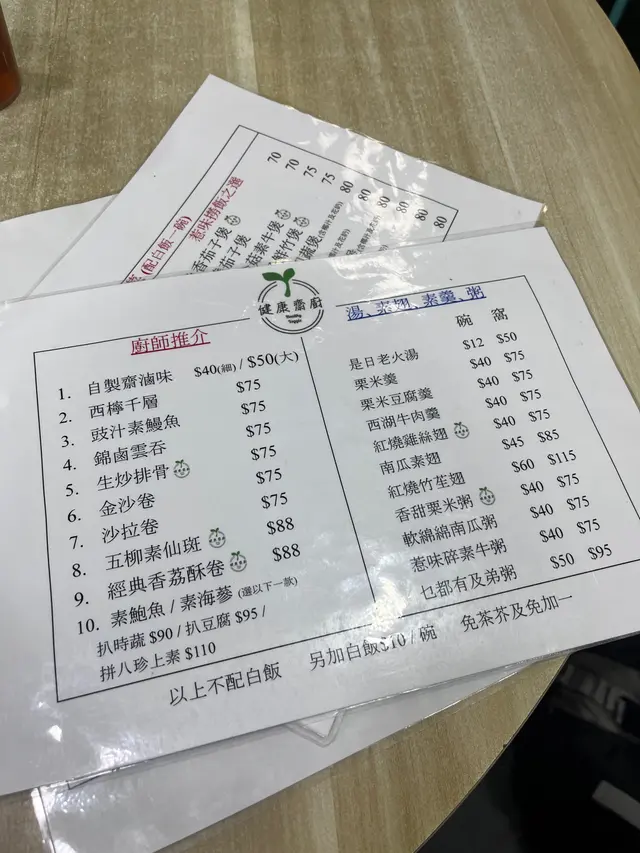 70
70
75
75
80
80
80
80
80
80
惹味撈飯之選
(配白飯一碗)
健康齋廚
廚師推介
1. 自製齋滷味 $40(細) / $50(大)
2. 西檸千層 $75
3. 豉汁素鰻魚 $75
4. 錦鹵雲吞 $75
5. 生炒排骨 $75
6. 金沙卷 $75
7. 沙拉卷 $75
8. 五柳素仙斑 $88
9. 經典香荔酥卷 $88
10. 素鮑魚 / 素海蔘 (選以下一款)
扒時蔬 $90 / 扒豆腐 $95 /
拼八珍上素 $110
湯、素翅、素羹、粥
碗 窩
是日老火湯 $12 $50
栗米羹 $40 $75
栗米豆腐羹 $40 $75
西湖牛肉羹 $40 $75
紅燒雞絲翅 $40 $75
南瓜素翅 $45 $85
紅燒竹笙翅 $60 $115
香甜栗米粥 $40 $75
軟綿綿南瓜粥 $40 $75
惹味碎素牛粥 $40 $75
乜都有及弟粥 $50 $95
以上不配白飯 另加白飯$10 / 碗 免茶芥及免加一